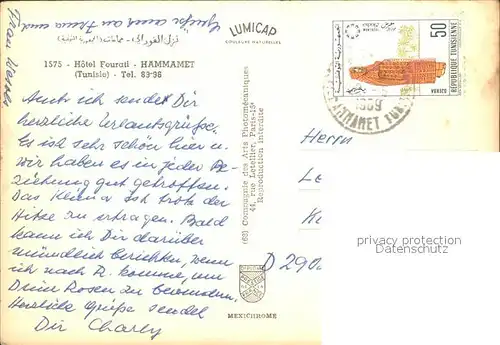 Grüße auch an Firma und
Frau Messer
LUMICAP
COULEURS NATURELLES
نزل الفوراتي - حمامات (الجمهورية التونسية)
1575 - Hôtel Fourati - HAMMAMET
(Tunisie) - Tel. 83-38
Auch ich sendet Dir
herzliche Urlaubsgrüsse.
Es ist sehr schön hier u.
wir haben es in jeder Be-
ziehung gut getroffen.
Das Klima ist trotz der
Hitze zu ertragen. Bald
kann ich Dir darüber
mündlich berichten, wenn
ich nach R. komme, um
Deine Rosen zu bewundern.
Herzliche Grüße sendet
Dir Charly
(68) Compagnie des Arts Photomécaniques
44, rue Letellier, Paris-15e
Reproduction interdite
MEXICHROME
50
REPUBLIQUE TUNISIENNE
HAMMAMET
Herrn
Le
D 290
privacy protection
Datenschutz